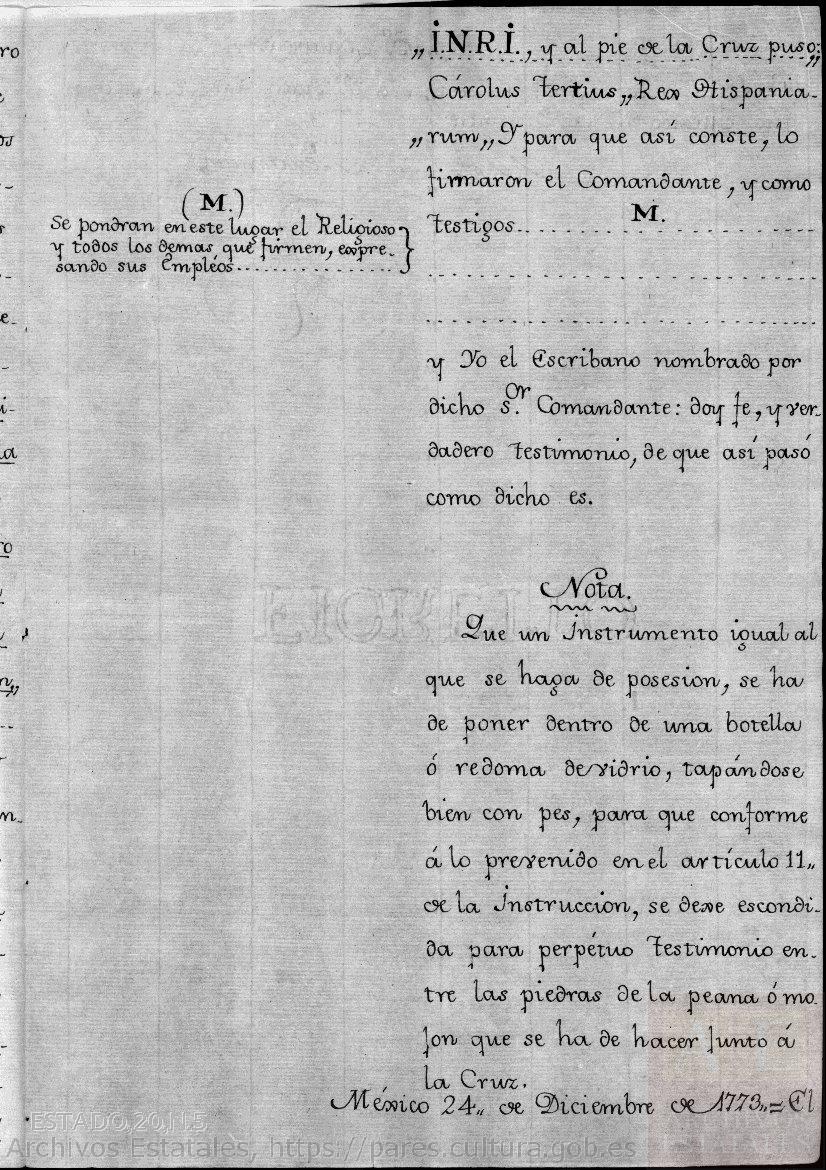 „I.N.R.I., y al pie de la Cruz puso:
Cárolus Tertius„ Rex Hispania-
„rum„ Y para que así conste, lo
firmaron el Comandante, y como
Testigos.......... M. ..........
(M.)
Se pondran en este lugar el Religioso
y todos los demas que firmen, expre-
sando sus Empléos................
y Yo el Escribano nombrado por
dicho s.or Comandante: doy fe, y ver-
dadero Testimonio, de que así pasó
como dicho es.
Nota.
Que un Instrumento igual al
que se haga de posesion, se ha
de poner dentro de una botella
ó redoma de vidrio, tapándose
bien con pes, para que conforme
á lo prevenido en el artículo 11„
de la Instruccion, se dexe escondi-
da para perpétuo Testimonio en-
tre las piedras de la peana ó mo-
jon que se ha de hacer junto á
la Cruz.
México 24„ de Diciembre de 1773„= El
ESTADO,20,N.5
Archivos Estatales, https://pares.cultura.gob.es